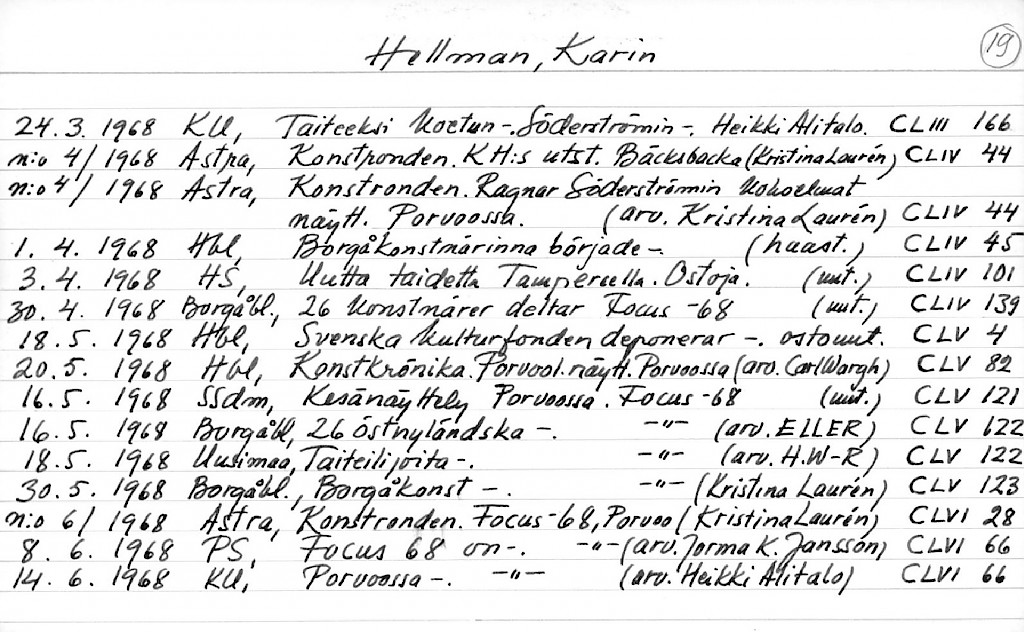 19
Hellman, Karin
24.3. 1968 KU, Taiteeksi Koetun -. Söderströmin -. Heikki Alitalo. CLIII 166
n:o 4/1968 Astra, Konstronden. KH:s utst. Bäcksbacka (Kristina Laurén) CLIV 44
n:o 4/1968 Astra, Konstronden. Ragnar Söderströmin kokoelmat
näytt. Porvoossa. (arv. Kristina Laurén) CLIV 44
1. 4. 1968 Hbl, Borgåkonstnärinna började -. (haast.) CLIV 45
3. 4. 1968 HS, Uutta taidetta Tampereella. Ostoja. (uut.) CLIV 101
30. 4. 1968 Borgåbl., 26 konstnärer deltar Focus -68 (uut.) CLIV 139
18. 5. 1968 Hbl, Svenska kulturfonden deponerar -. ostouut. CLV 4
20.5. 1968 Hbl, Konstkrönika. Porvool. näytt. Porvoossa (arv. Carl Wargh) CLV 82
16.5. 1968 SSdm, Kesänäyttely Porvoossa. Focus -68 (uut.) CLV 121
16.5. 1968 Borgåbl, 26 östnyländska -. -"- (arv. ELLER) CLV 122
18.5. 1968 Uusimaa, Taiteilijoita -. -"- (arv. H.W-R) CLV 122
30.5. 1968 Borgåbl., Borgåkonst -. -"- (Kristina Laurén) CLV 123
n:o 6/1968 Astra, Konstronden. Focus -68, Porvoo (Kristina Laurén) CLVI 28
8. 6. 1968 PS, Focus 68 on -. -"- (arv. Jorma K. Jansson) CLVI 66
14. 6. 1968 KU, Porvoossa -. -"- (arv. Heikki Alitalo) CLVI 66